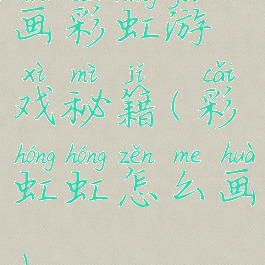 画彩虹游
xì mì jí cǎi
戏秘籍(彩
hóng hóng zěn me huà
虹虹怎么画
)